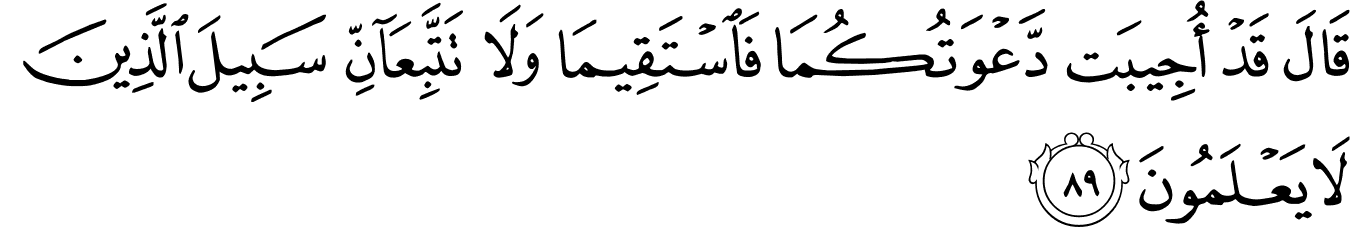 قَالَ قَدْ أُجِيبَت دَّعْوَتُكُمَا فَٱسْتَقِيمَا وَلَا تَتَّبِعَآنِّ سَبِيلَ ٱلَّذِينَ
لَا يَعْلَمُونَ ٨٩